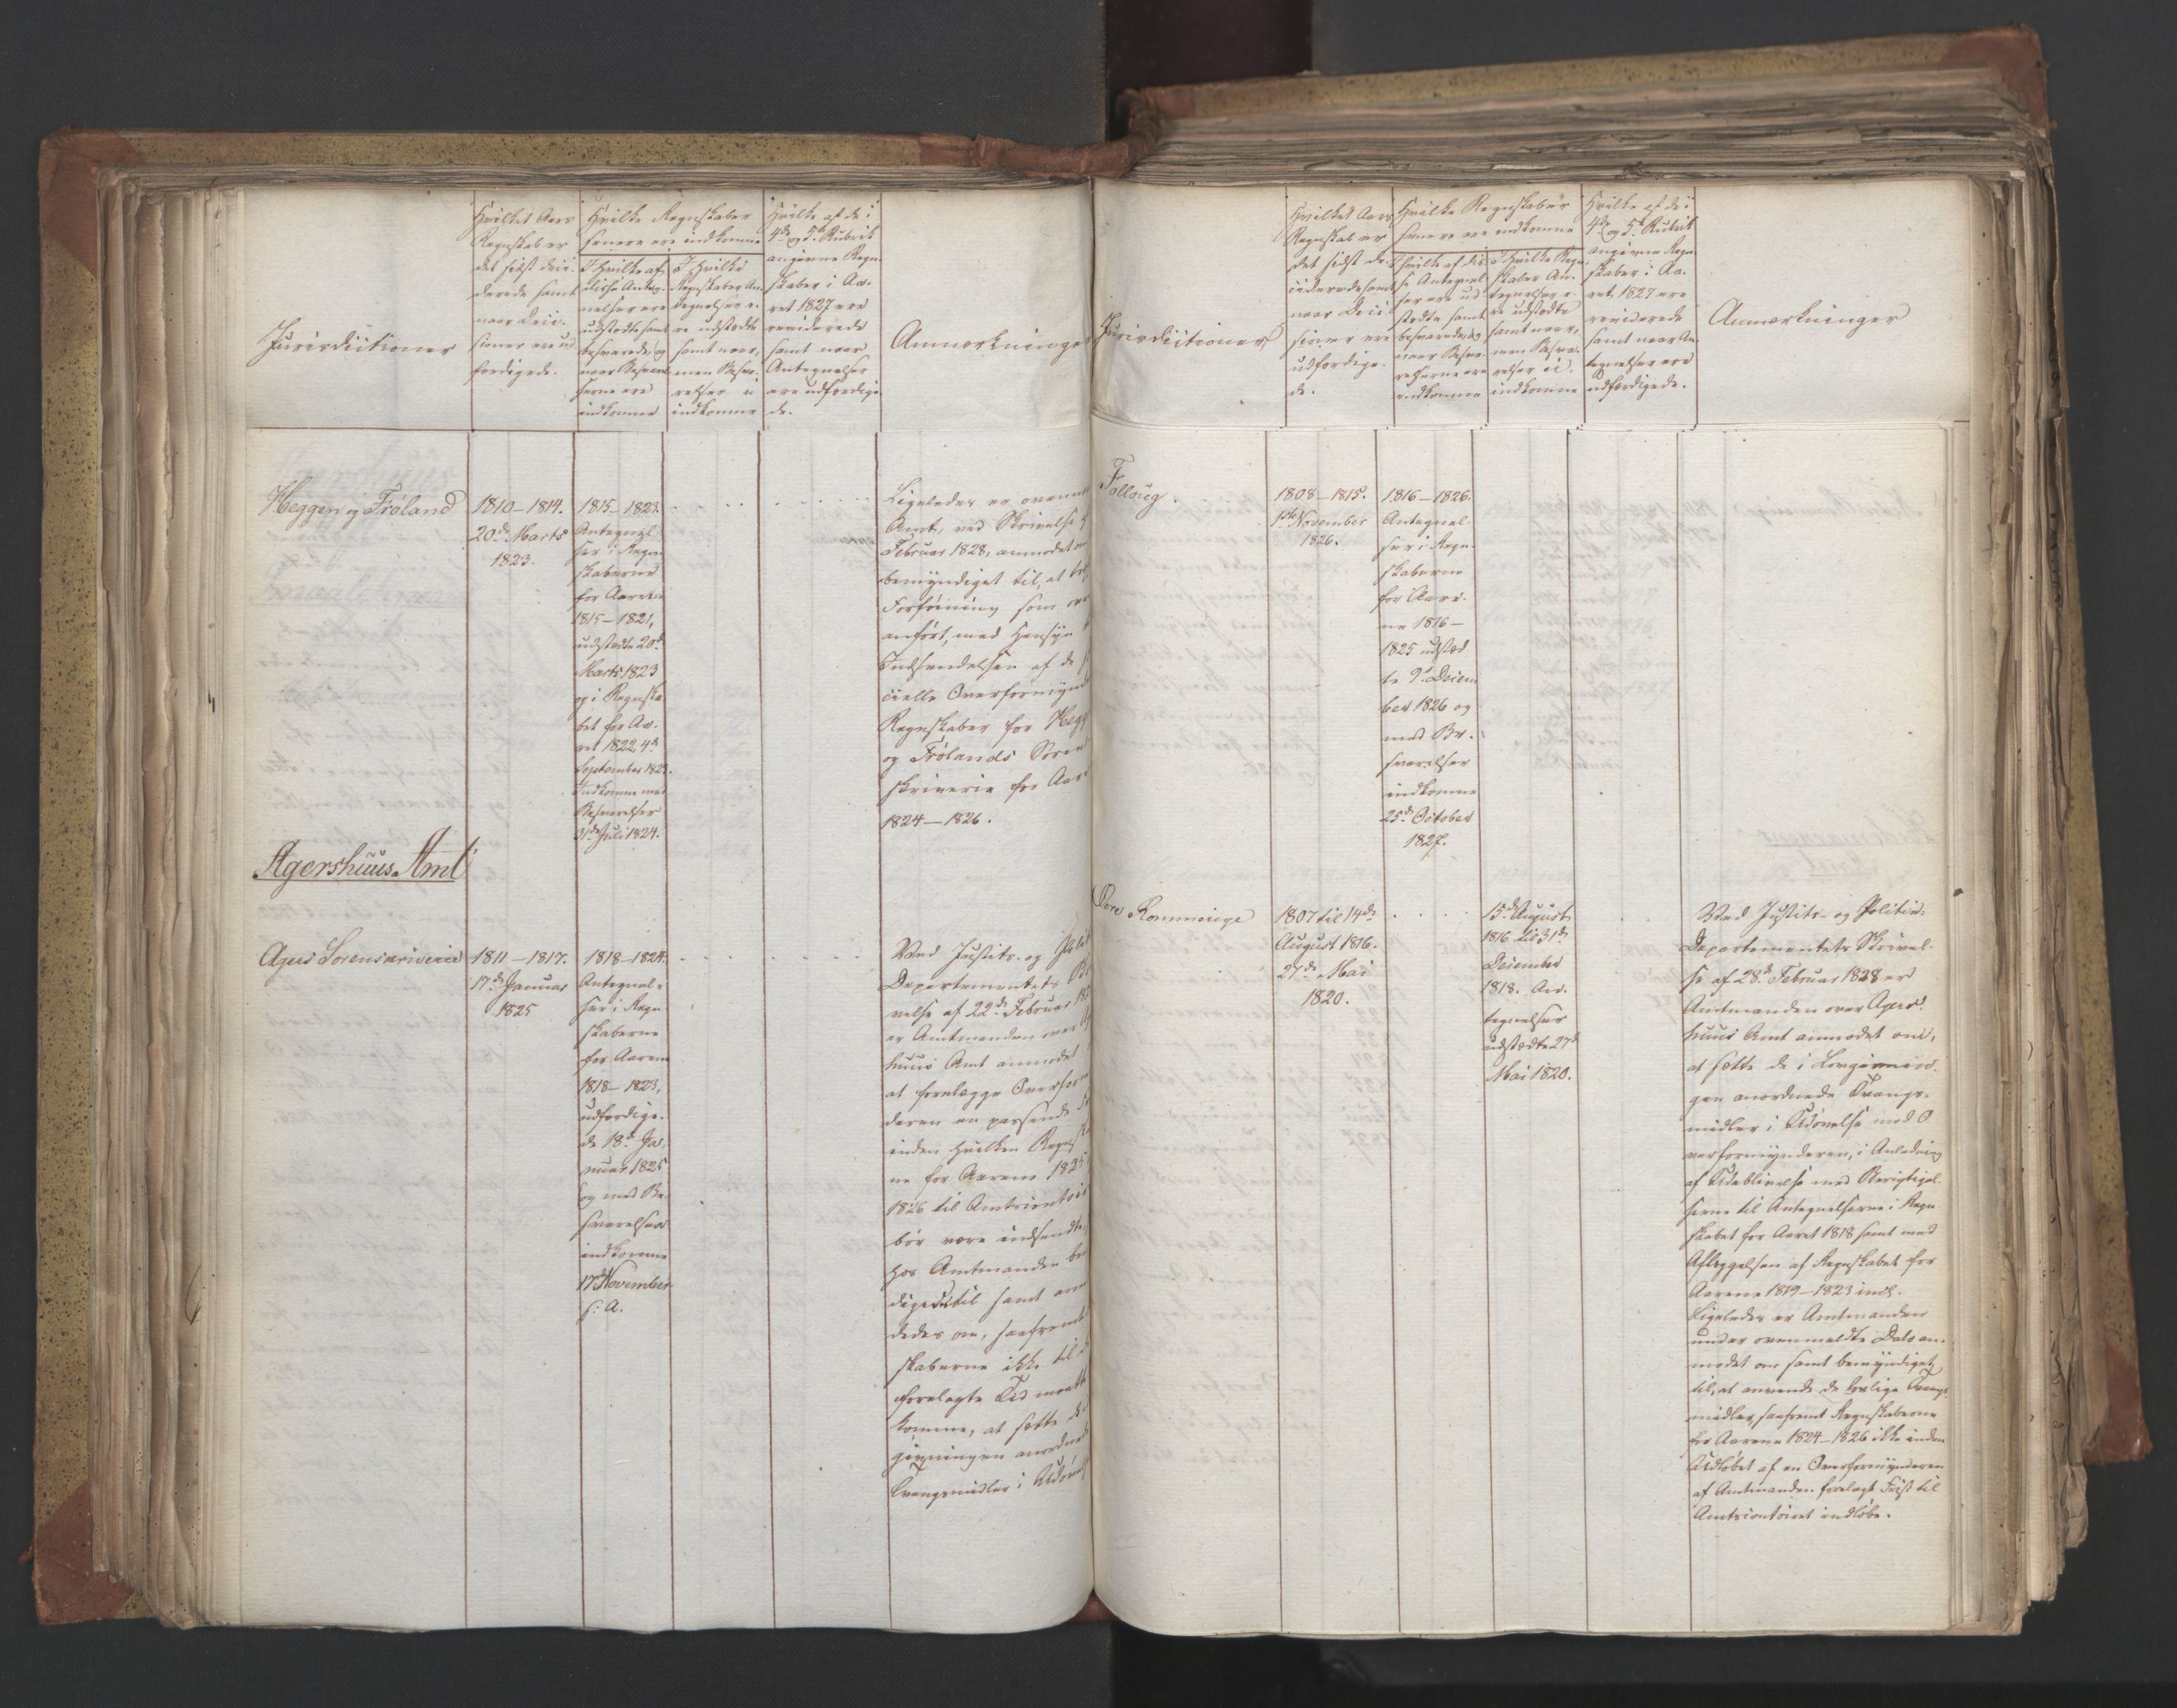 Jurisdictioner
Hvilket Aars
Regnskab er
det sidst deci-
derede samt
naar Deci-
sioner ere ud
færdigede.
Hvilke Regnskaber
senere ere indkomne
I Hvilke af
disse Anteg-
nelser ere
udstædte samt
besvarede, og
naar Besvarel
serne ere
indkomne
I Hvilke
Regnskaber An-
tegnelser e-
re udstædte
samt naar,
men Besva-
relser ei
indkomne
Hvilke af de i
4de og 5te Rubrik
angivne Regn-
skaber i Aa-
ret 1827 ere
reviderede
samt naar
Antegnelser
ere udfærdige
de.
Anmærkninger
Heggen og Frøland
1810–1814.
20de Marts
1823.
1815–1823.
Antegnel-
ser i Regn-
skaberne
for Aarene
1815–1821,
udstædte 20de
Marts 1823
og i Regnska-
bet for Aa-
ret 1822, 4de
September 1823.
Indkomne med
Besvarelser
31de Juli 1824.
Ligeledes er ovenn
Amt, ved Skrivelse af
Februar 1828, anmodet om
bemyndiget til, at
Forføining som ove
anført, med Hensyn
Indsendelsen af de
cielle Overformynd
Regnskaber for Hegg
og Frølands Soren
skriverie for Aar
1824–1826.
Agershuus Amt
Agers Sorenskriverie
1811–1817.
17de Januar
1825
1818–1824.
Antegnel-
ser i Regn
skaberne
for Aarene
1818–1823,
udfærdige-
de 18de Ja-
nuar 1825
og med Be-
svarelser
indkomne
17de November
s: A.
Ved Justits- og Polit
Departementets Skri
velse af 22de Februar 182
er Amtmanden over Ag
huus Amt anmodet
at forelægge Overform
deren en passende
inden hvilken Regnsk
ne for Aarene 1825
1826 til Amtscontoir
bør være indsendte,
hos Amtmanden be
diges til samt anm
dedes om, saafremt
skaberne ikke til
forelagte Tid maatte
komme, at sætte de
givningen anordnede
Tvangsmidler i Udøvels
Jurisdictioner
Hvilket Aars
Regnskab er
det sidst de-
ciderede samt
naar Deci
sioner ere
udfærdige-
de.
Hvilke Regnskaber
senere ere indkomne
I hvilke af dis-
se Antegnel
ser ere ud-
stædte samt
besvarede, og
naar Besva-
relserne ere
indkomne
I Hvilke Regn
skaber An-
tegnelser e-
re udstædte
samt naar,
men Besva-
relser ei
indkomne
Hvilke af de i
4de og 5te Rubrik
angivne Regn
skaber i Aa-
ret 1827 ere
reviderede
samt naar An
tegnelser ere
udfærdigede.
Anmærkninger
Folloug
1808–1815.
1ste November
1826.
1816–1826.
Antegnel-
ser i Regn-
skaberne
for Aare-
ne 1816–
1825 udstæd
te 9de Decem
ber 1826 og
med Be-
svarelser
indkomne
25de October
1827.
Øvre Rommerige
1807 til 14de
August 1816.
27de Mai
1820.
15de August
1816 til 31de
December
1818. An-
tegnelser
udstædte 27de
Mai 1820.
Ved Justits- og Politie-
Departementets Skrivel-
se af 28de Februar 1828 er
Amtmanden over Agers-
huus Amt anmodet om,
at sætte de i Lovgivnin-
gen anordnede Tvangs-
midler i Udøvelse mod O-
verformynderen, i Anledning
af Udeblivelse med Berigtigel-
serne til Antegnelserne i Regn
skabet for Aaret 1818 samt med
Aflæggelsen af Regnskabet for
Aarene 1819–1823 incl.
Ligeledes er Amtmanden
under ovenmeldte Dato an-
modet om samt bemyndiget
til, at anvende de lovlige Tvangs
midler, saafremt Regnskaberne
for Aarene 1824–1826 ikke inden
Udløbet af en Overformynderen
af Amtmanden forelagt Frist til
Amtscontoiret indløbe.